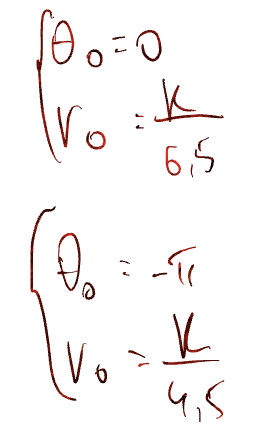 θ₀ = 0
V₀ = K/6,5
θ₀ = -π
V₀ = K/4,5